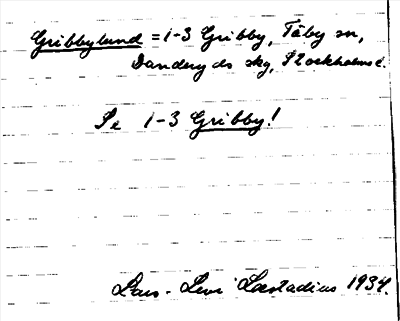 Gribbylund = 1-3 Gribby, Täby sn,
Danderyds skg, Stockholms l.
Se 1-3 Gribby!
Lars-Levi Læstadius 1934.